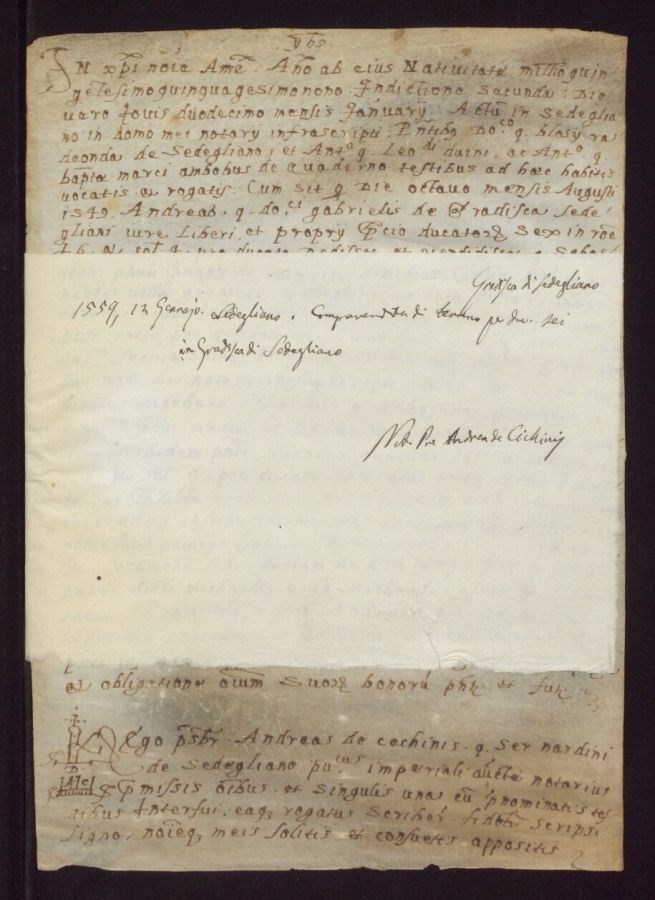 yhs
IN xp̄i nōīa Amē. Año ab eius Nativitate millo quin
gētesimo quinquagesimo nono: Indictione Secunda: Die
vero Jouis duodecimo mensis Januarÿ: Actū in Sedeglia
no in domo mei notarÿ infrascripti: Pñtibq Do.co q. blasÿ ra
deonda de Sedegliano, et Antº q. Leodi duini, ac Antº. q.
bapte marci ambobus de quaderno testibus ad hæc habitis
vocatis et rogatis: Cum sit q Die octavo mensis Augusti
1549. Andreas. q. do.ci gabrielis de Gradisca Sede
gliani iure Liberi et proprÿ pcio ducatorȝ Sex in
Gradisca di Sedegliano
1559, 12 Gennajo. Sedegliano. Compravendita di terreno per duc. sei
in Gradisca di Sedegliano
Not. Pre Andrea de Cichinis
et obligatione oīum Suorȝ bonorū
Ego p̄sbr Andreas de cechinis. q. Ser nardini
de Sedegliano pu.cus imperiali aucte notarius
pmissis oībus et Singulis una cū pnominatis tes
tibus Interfui, eaq rogatus Scribere fideltr Scripsi
Signo, noīeq meis Solitis et consuetis appositis